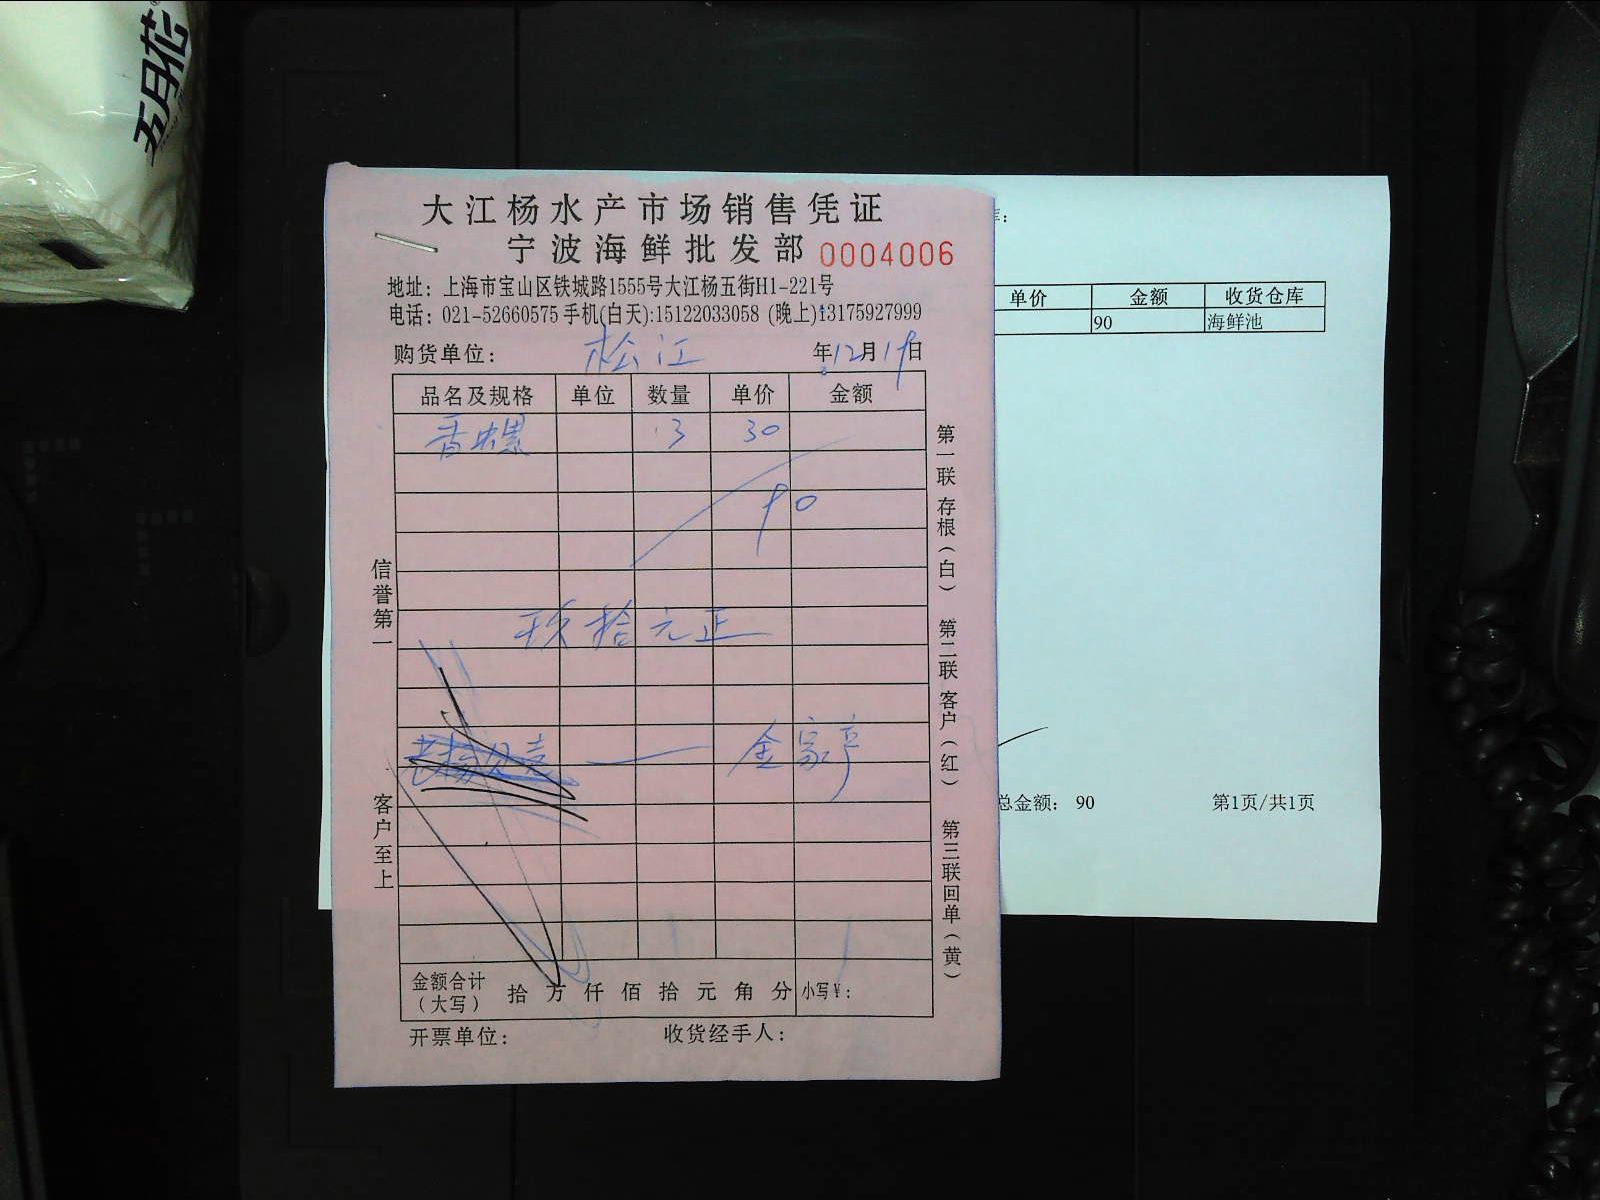 五月花
大江杨水产市场销售凭证
宁波海鲜批发部 0004006
地址：上海市宝山区铁城路1555号大江杨五街H1-221号
电话：021-52660575 手机(白天):15122033058 (晚上)13175927999
购货单位： 松江 年12月19日
品名及规格 单位 数量 单价 金额
香螺 3 30
90
玖拾元正
金家亭
信誉第一
客户至上
第一联 存根（白） 第二联 客户（红） 第三联 回单（黄）
金额合计（大写） 拾 万 仟 佰 拾 元 角 分 小写￥：
开票单位： 收货经手人：
单价 金额 收货仓库
90 海鲜池
总金额： 90 第1页/共1页